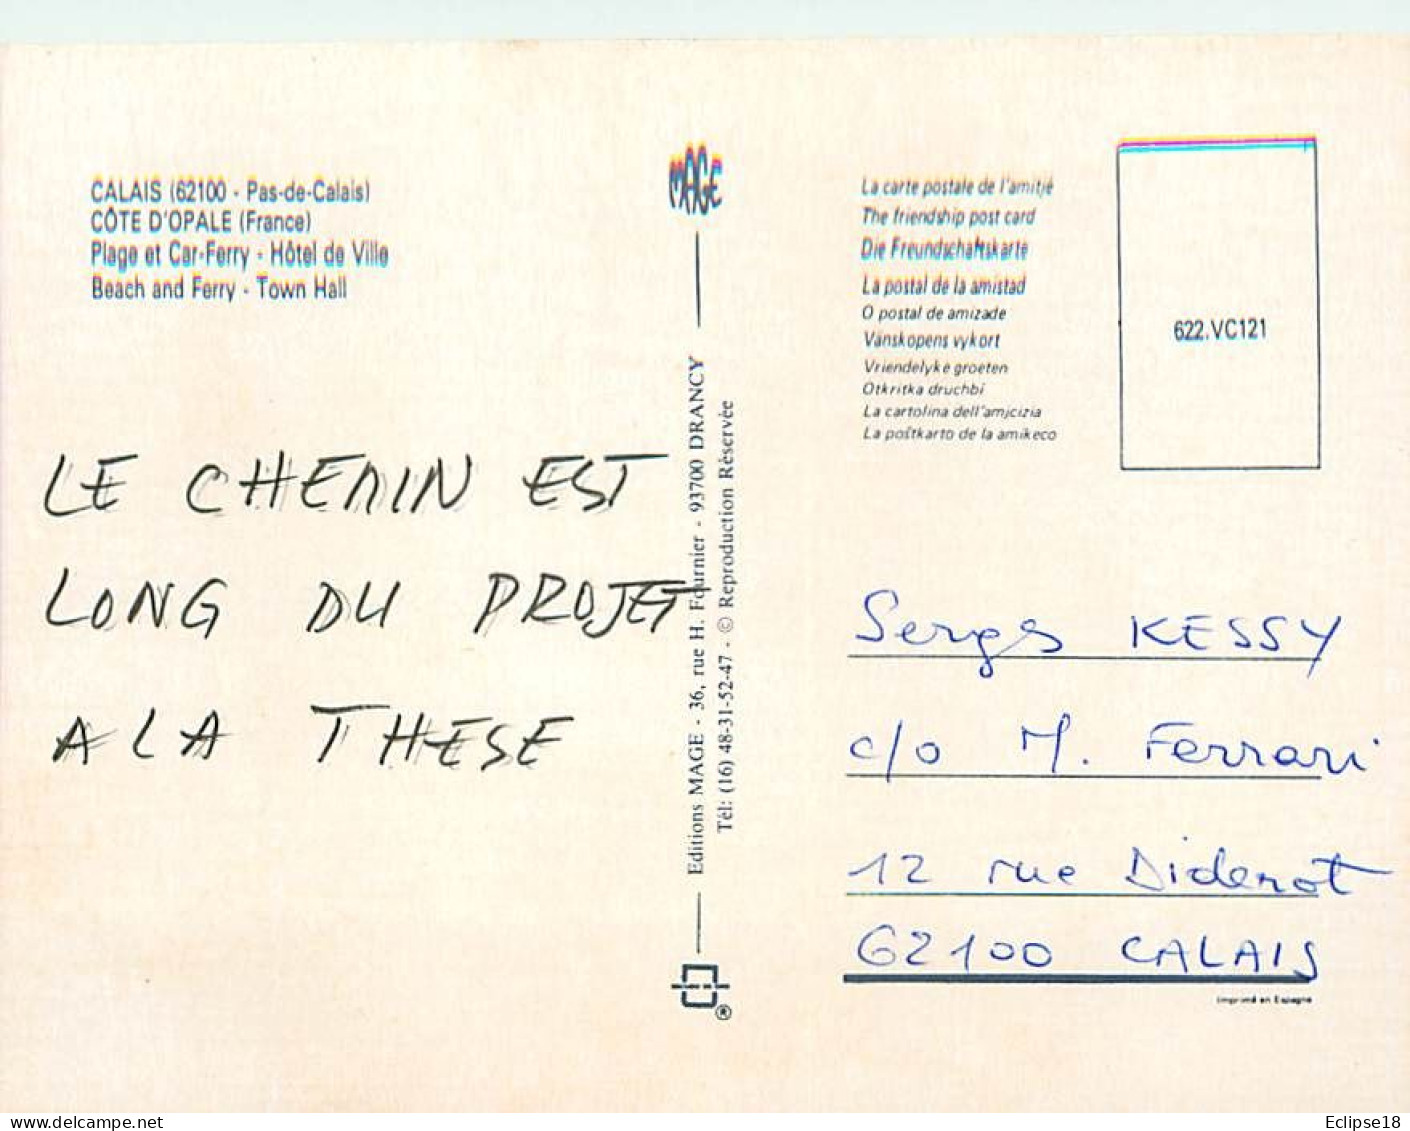 CALAIS (62100 - Pas-de-Calais)
CÔTE D'OPALE (France)
Plage et Car-Ferry - Hôtel de Ville
Beach and Ferry - Town Hall
LE CHEMIN EST
LONG DU PROJET
A LA THESE
MAGE
Editions MAGE - 36, rue H. Fournier - 93700 DRANCY
Tél: (16) 48-31-52-47 - © Reproduction Réservée
®
La carte postale de l'amitié
The friendship post card
Die Freundschaftskarte
La postal de la amistad
O postal de amizade
Vänskopens vykort
Vriendelyke groeten
Otkritka druchbi
La cartolina dell'amjcizia
La poŝtkarto de la amikeco
622.VC121
Serges KESSY
c/o M. Ferrari
12 rue Diderot
62100 CALAIS
Imprimé en Espagne
www.delcampe.net
Eclipse18